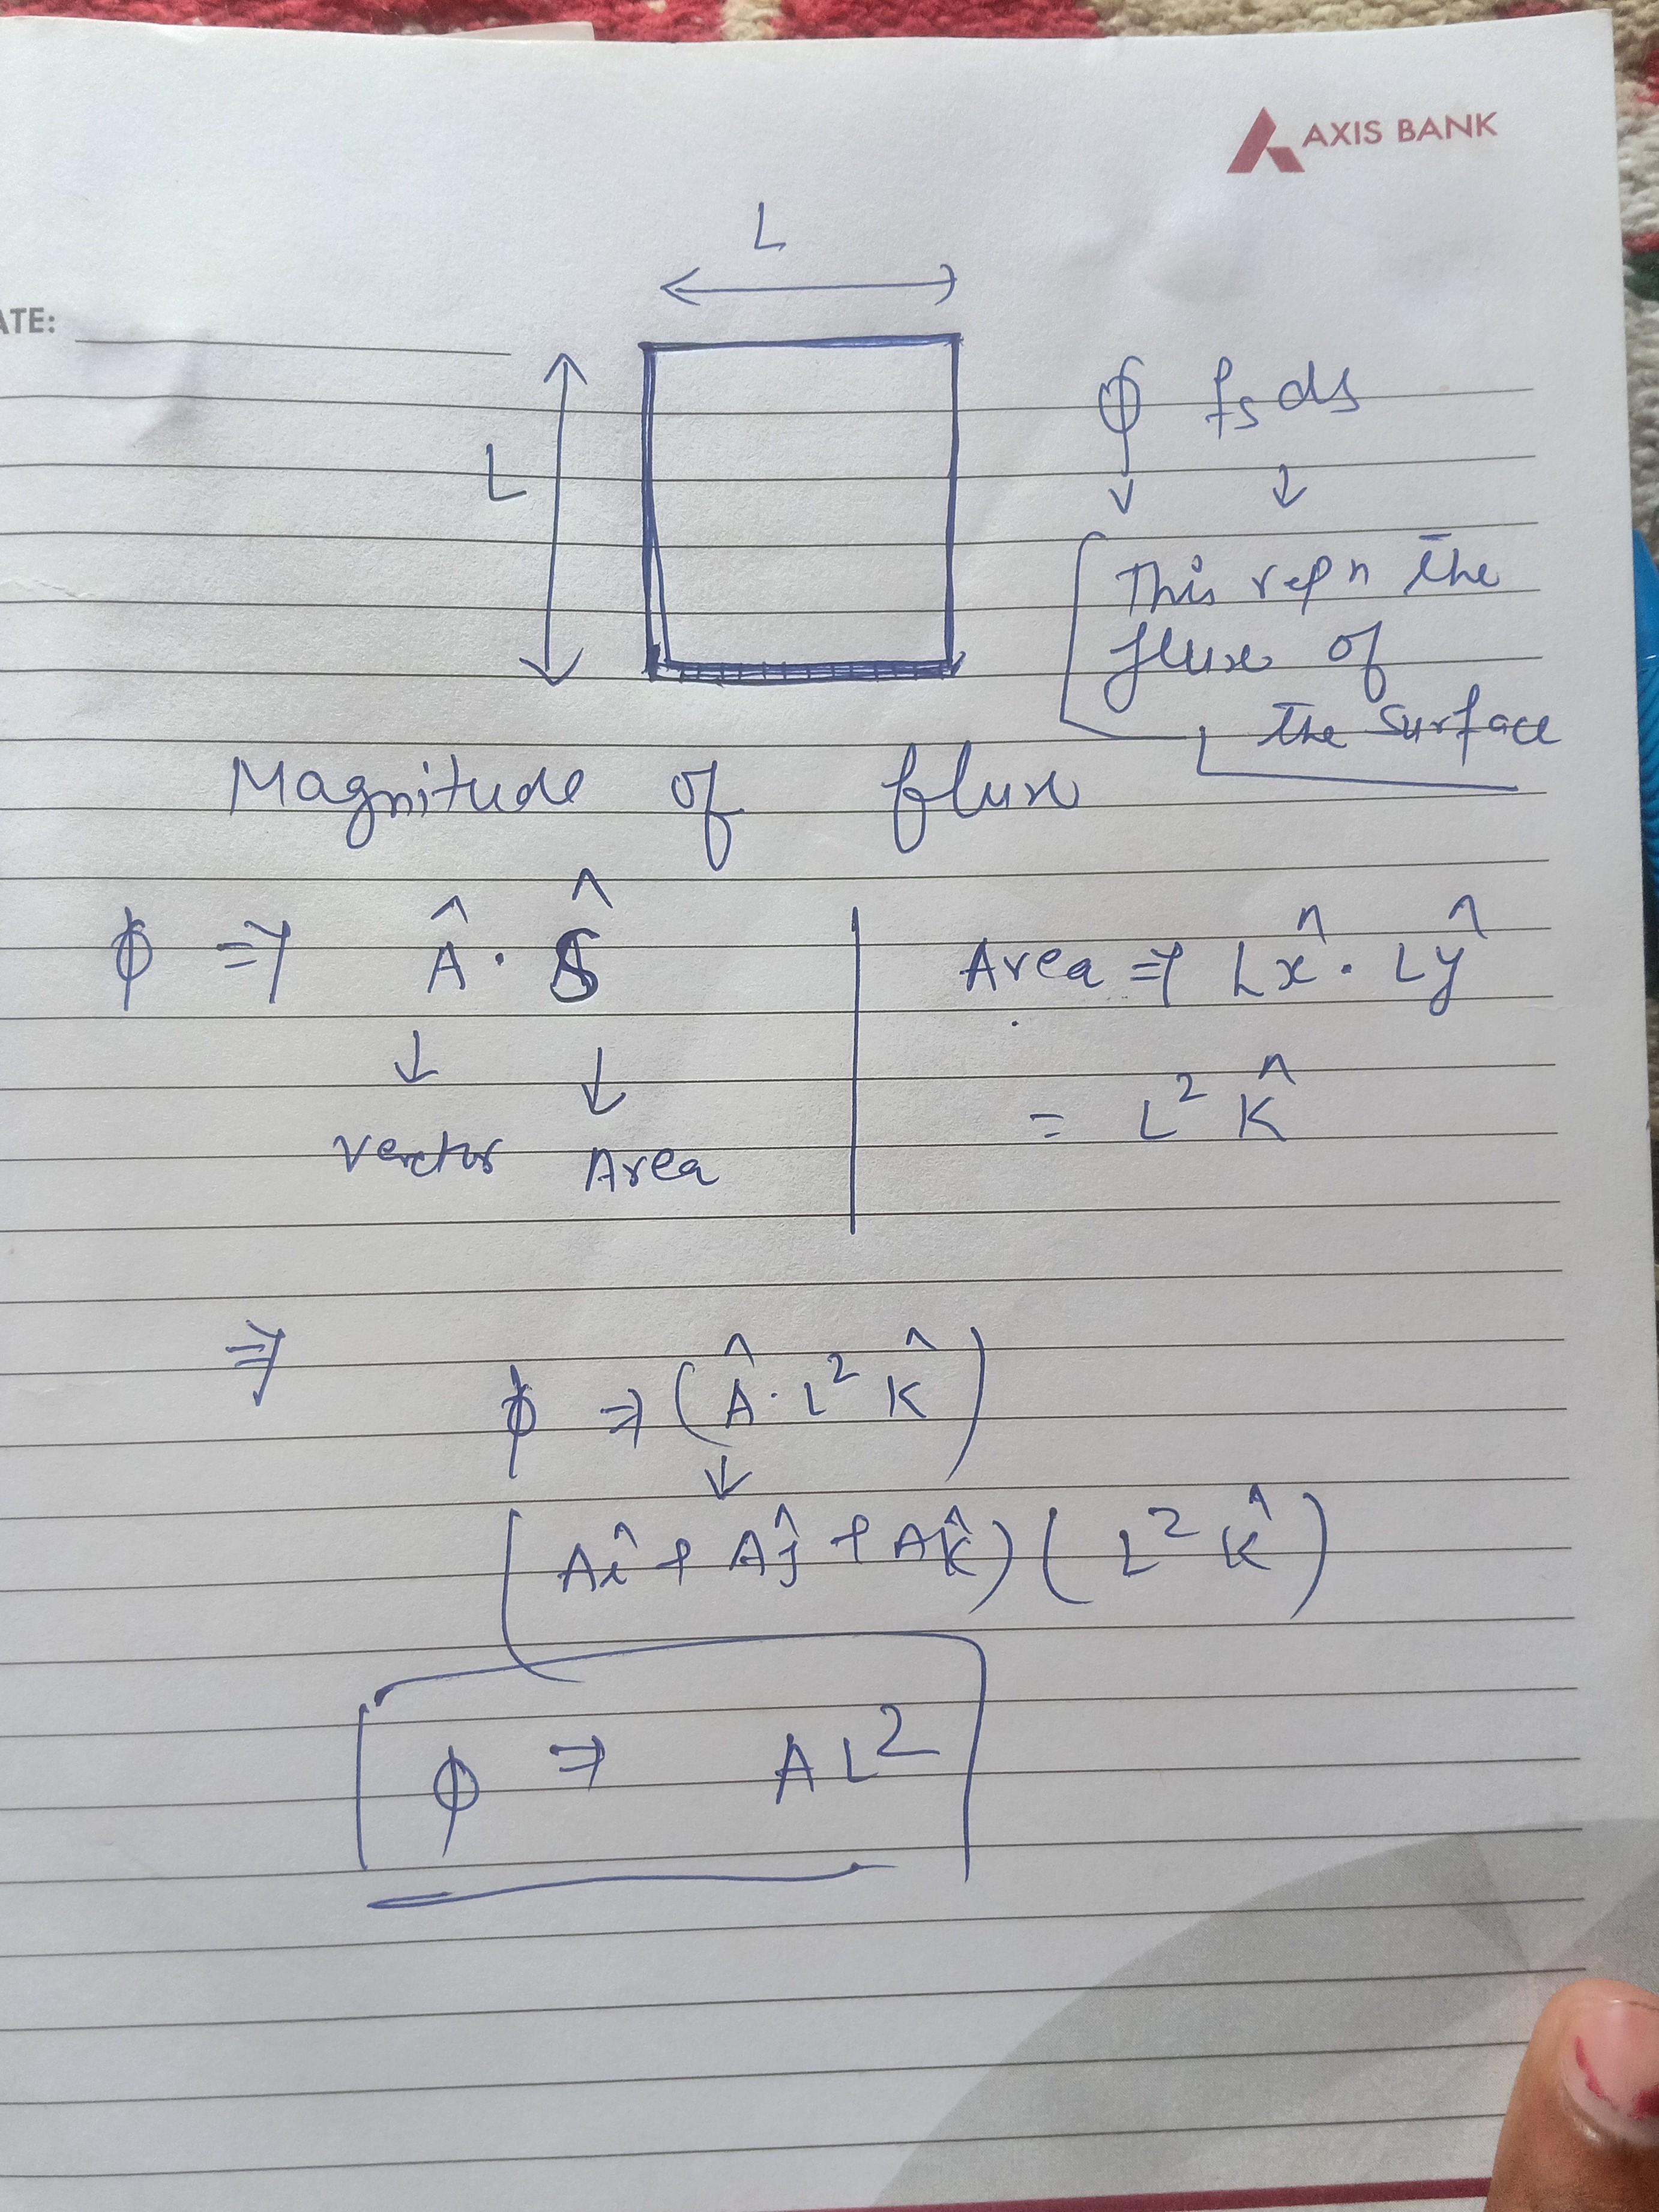 AXIS BANK
ATE:
L
L
φ fs ds
↓ ↓
This repn the
flux of
the surface
Magnitude of flux
φ ⇒ Â · Ŝ
↓ ↓
Vector Area
Area ⇒ Lx̂ · Lŷ
= L² K̂
⇒ φ ⇒ (Â · L² K̂)
↓
(Aî + Aĵ + AK̂) (L² K̂)
φ ⇒ AL²